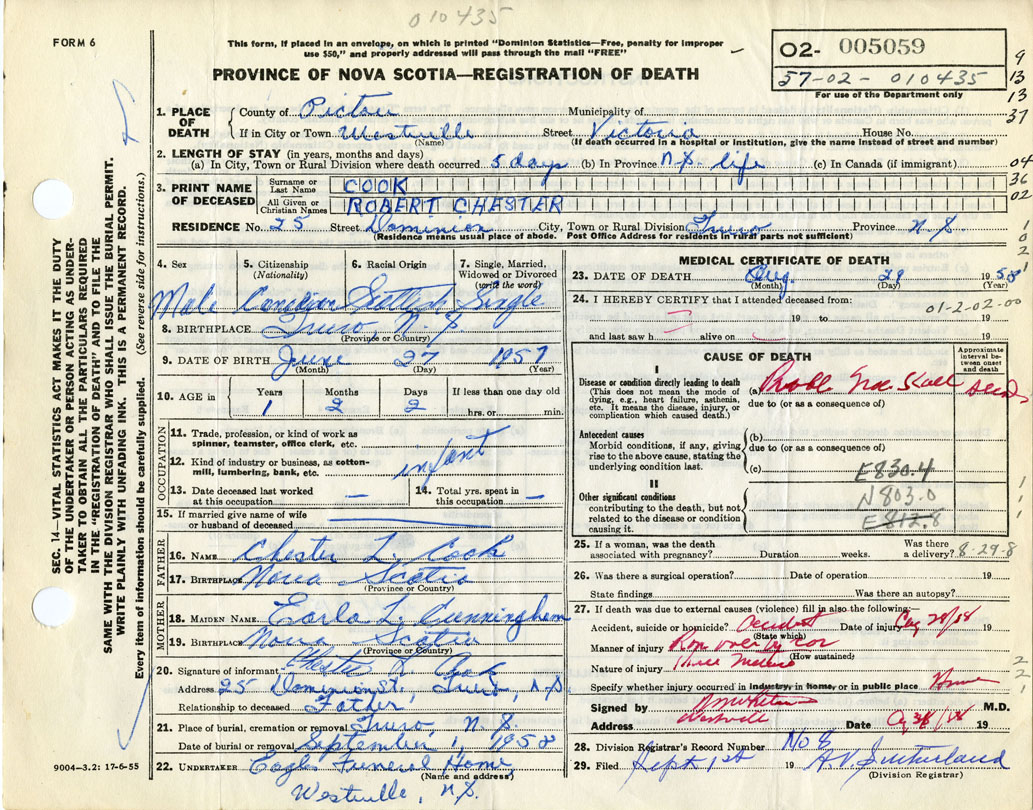 010435
FORM 6
This form, if placed in an envelope, on which is printed "Dominion Statistics—Free, penalty for improper
use $50," and properly addressed will pass through the mail "FREE"
02- 005059
57-02- 010435
For use of the Department only
PROVINCE OF NOVA SCOTIA—REGISTRATION OF DEATH
9
13
13
37
04
36
02
1. PLACE OF DEATH
County of Pictou Municipality of
If in City or Town Westville Street Victoria House No.
(Name) (If death occurred in a hospital or institution, give the name instead of street and number)
2. LENGTH OF STAY (in years, months and days)
(a) In City, Town or Rural Division where death occurred 5 days (b) In Province N.S. life (c) In Canada (if immigrant)
3. PRINT NAME OF DECEASED
Surname or Last Name COOK
All Given or Christian Names ROBERT CHESTER
RESIDENCE No. 25 Street Dominion City, Town or Rural Division Truro Province N.S.
(Residence means usual place of abode. Post Office Address for residents in rural parts not sufficient)
4. Sex 5. Citizenship 6. Racial Origin 7. Single, Married,
(Nationality) Widowed or Divorced
(write the word)
Male Canadian Scottish Single
8. BIRTHPLACE Truro, N.S
(Province or Country)
9. DATE OF BIRTH June 27 1957
(Month) (Day) (Year)
10. AGE in Years Months Days If less than one day old
1 2 2 hrs. or min.
OCCUPATION
11. Trade, profession, or kind of work as
spinner, teamster, office clerk, etc.
infant
12. Kind of industry or business, as cotton-
mill, lumbering, bank, etc.
13. Date deceased last worked
at this occupation —
14. Total yrs. spent in
this occupation —
15. If married give name of wife
or husband of deceased
FATHER
16. NAME Chester L. Cook
17. BIRTHPLACE Nova Scotia
(Province or Country)
MOTHER
18. MAIDEN NAME Earla L. Cunningham
19. BIRTHPLACE Nova Scotia
(Province or Country)
20. Signature of informant Chester L Cook
Address 25 Dominion St., Truro, N.S.
Relationship to deceased Father
21. Place of burial, cremation or removal Truro, N.S.
Date of burial or removal September 1, 1958
22. UNDERTAKER Eagles Funeral Home
(Name and address)
Westville, N.S.
MEDICAL CERTIFICATE OF DEATH
23. DATE OF DEATH Aug. 29 1958
(Month) (Day) (Year)
24. I HEREBY CERTIFY that I attended deceased from:
01-2-02-00
19 to 19
and last saw h alive on 19
CAUSE OF DEATH
Approximate interval between onset and death
I
Disease or condition directly leading to death
(This does not mean the mode of
dying, e.g., heart failure, asthenia,
etc. It means the disease, injury, or
complication which caused death.)
(a) Probl Frac Skull
due to (or as a consequence of)
Antecedent causes
Morbid conditions, if any, giving
rise to the above cause, stating the
underlying condition last.
(b)
due to (or as a consequence of)
(c)
E830.4
II
Other significant conditions
contributing to the death, but not
related to the disease or condition
causing it.
N803.0
E812.8
25. If a woman, was the death
associated with pregnancy? Duration weeks. Was there
a delivery? 8-29-8
26. Was there a surgical operation? Date of operation 19
State findings Was there an autopsy?
27. If death was due to external causes (violence) fill in also the following:—
Accident, suicide or homicide? Accident Date of injury Aug 28/58
(State which)
Manner of injury Ran over by car
(How sustained)
Nature of injury
Specify whether injury occurred in industry, in home, or in public place Home
Signed by M.D.
Address Westville Date 19
28. Division Registrar's Record Number No 8
29. Filed Sept 1st 19 H.V. Sutherland
(Division Registrar)
SEC. 14—VITAL STATISTICS ACT MAKES IT THE DUTY
OF THE UNDERTAKER OR PERSON ACTING AS UNDER-
TAKER TO OBTAIN ALL THE PARTICULARS REQUIRED
IN THE "REGISTRATION OF DEATH" AND TO FILE THE
SAME WITH THE DIVISION REGISTRAR WHO SHALL ISSUE THE BURIAL PERMIT.
WRITE PLAINLY WITH UNFADING INK. THIS IS A PERMANENT RECORD.
Every item of information should be carefully supplied. (See reverse side for instructions.)
9004-3.2: 17-6-55